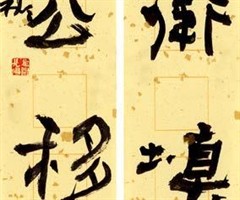 衛填
公移